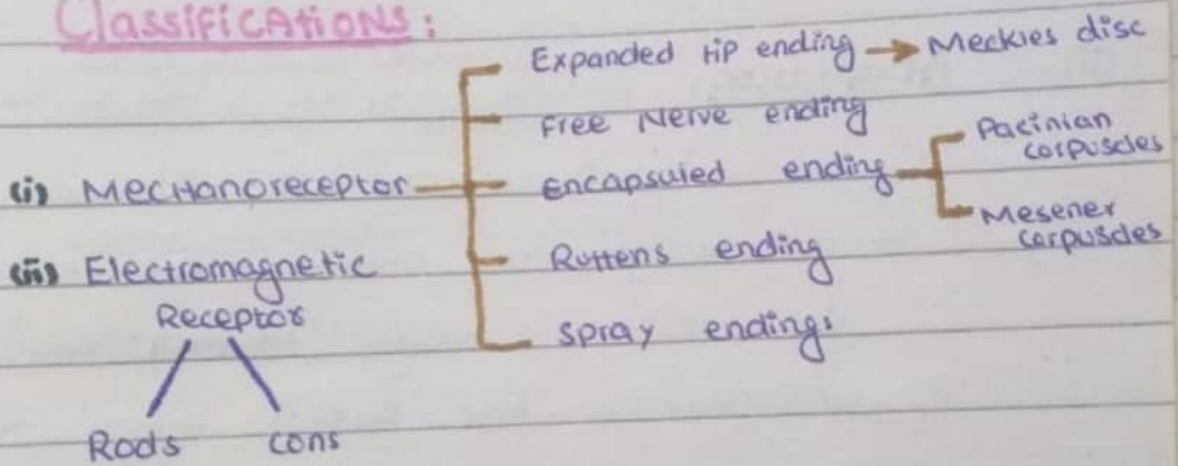 Classifications:
Expanded tip ending → Meckles disc
Free Nerve ending
(i) Mechanoreceptor
Encapsuled ending
Pacinian
corpuscles
Mesener
corpuscles
Ruttens ending
Spray endings
(ii) Electromagnetic
Receptor
Rods cons